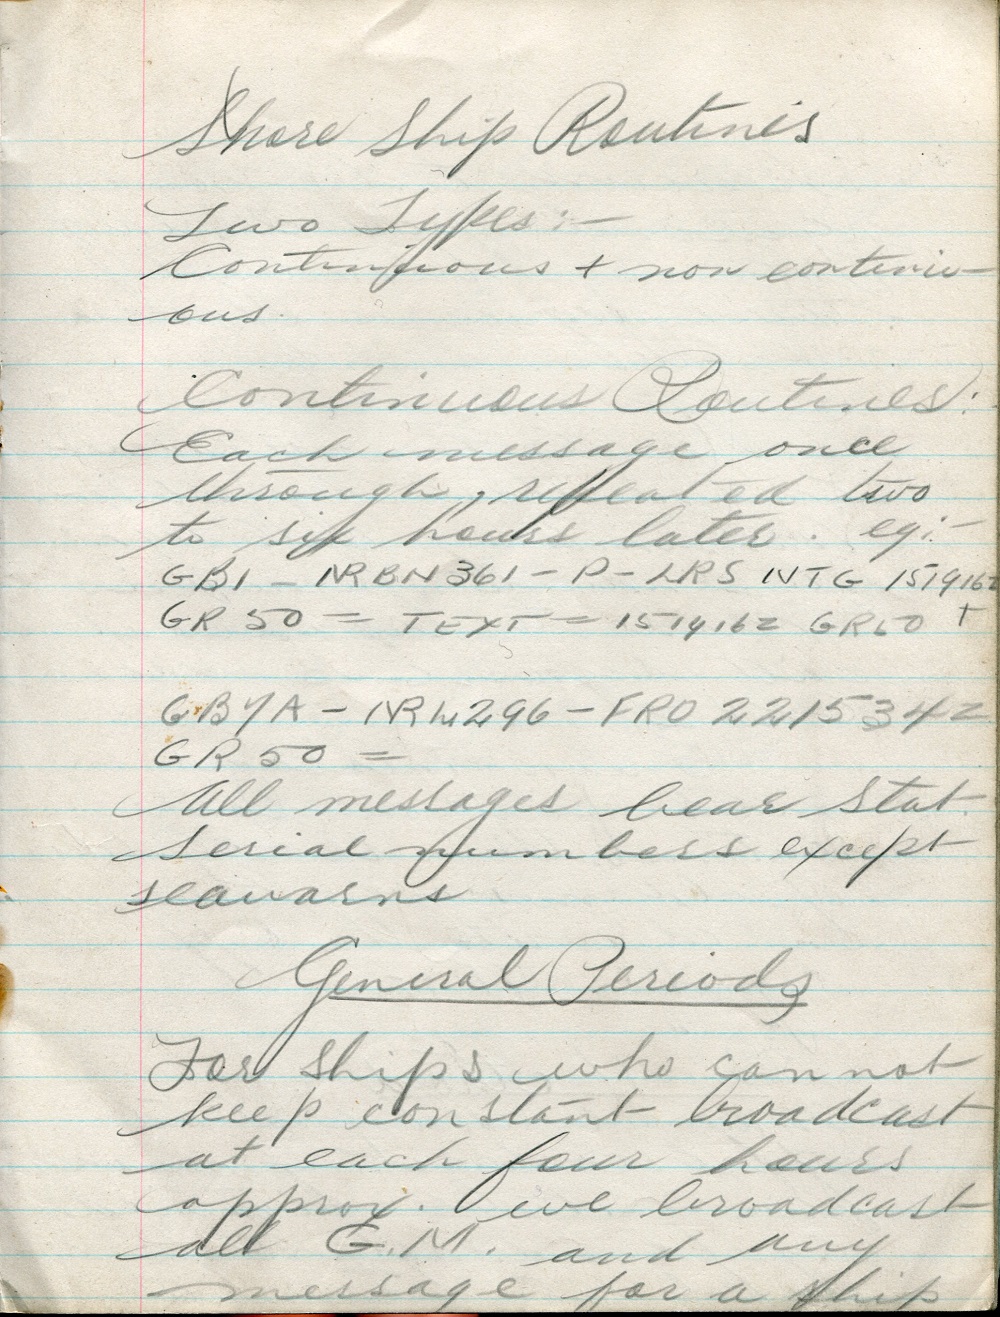 Shore Ship Routines
Two Types:-
Continuous + non continu-
ous.
Continuous Routines:
Each message once
through, repeated two
to six hours later. eg:-
GB1 - NR BN361 - P - LRS NTG 151916Z
GR 50 = TEXT = 151916Z GR50 +
GBYA - NR L296 - FRO 221534Z
GR 50 =
All messages bear Stat.
Serial numbers except
seawarns
General Periods
For ships who can not
keep constant broadcast
at each four hours
approx. we broadcast
all G.M. and any
message for a ship